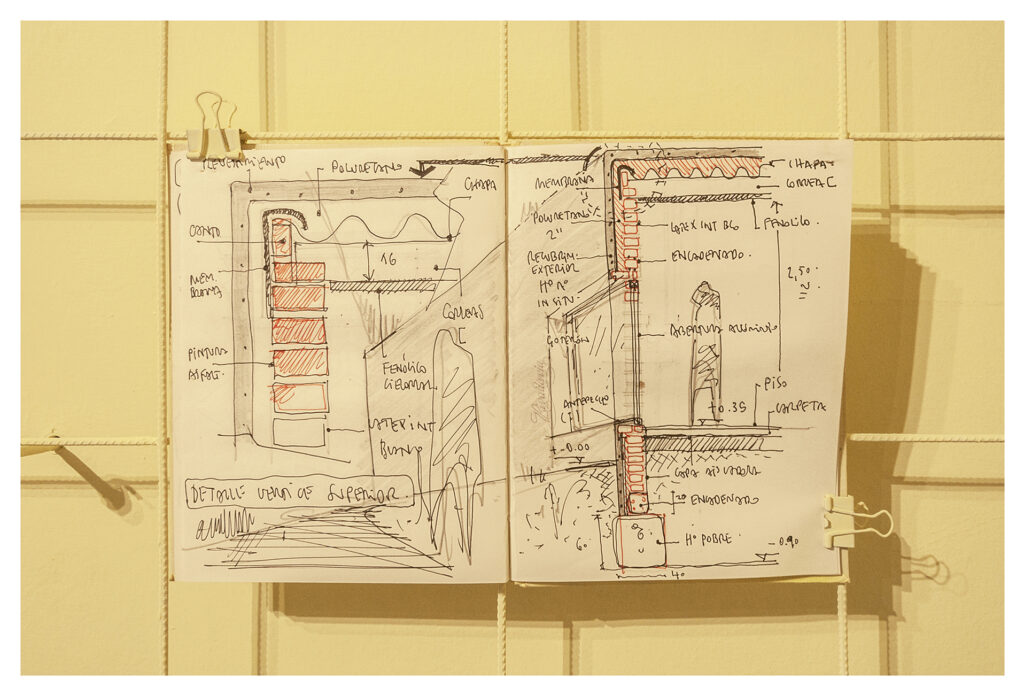 REVESTIMIENTO
POLIURETANO
CHAPA
CANTO
16
MEM
BRANA
CORREAS
C
PINTURA
ASFALT.
FENÓLICO
LATEX INT
BLANCO
DETALLE VERTICE SUPERIOR
MEMBRANA
CHAPA
CORREA C
POLIURETANO
2"
LATEX INT BCO
FENÓLICO.
RECUBRIM.
EXTERIOR
Hº Aº
IN SITU
ENCADENADO.
2,50
GOTERÓN
ABERTURA ALUMINIO
PISO
ANTEPECHO
+0.35
CARPETA
+-0.00
CAPA AISLADORA
ENCADENADO
60
Hº POBRE
-0.90
40